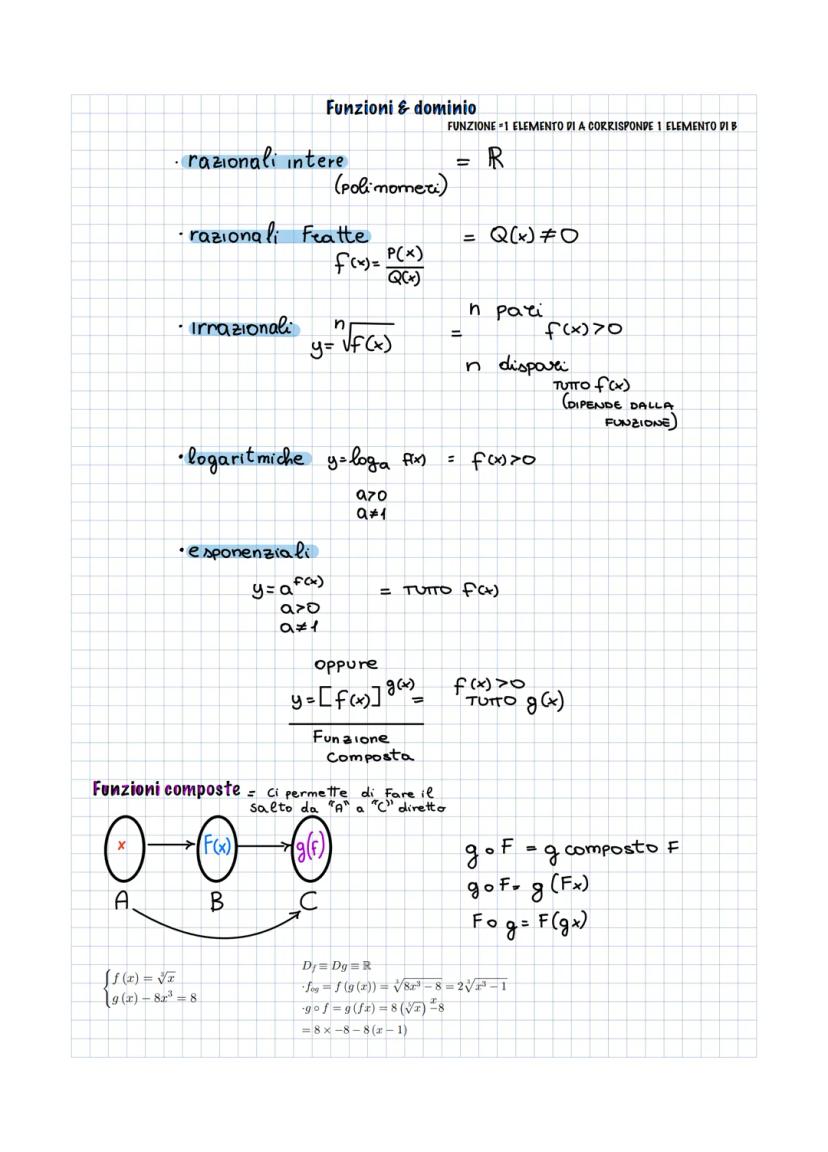 Funzioni & dominio
FUNZIONE =1 ELEMENTO DI A CORRISPONDE 1 ELEMENTO DI B
· razionali intere = ℝ
(polinomeri)
· razionali Fratte = Q(x) ≠ 0
f(x) = P(x)/Q(x)
n pari
· Irrazionali y = ⁿ√f(x) = f(x)>0
n dispari
TUTTO f(x)
(DIPENDE DALLA
FUNZIONE)
· logaritmiche y=logₐ f(x) = f(x)>0
a>0
a≠1
· esponenziali
y = a^f(x) = TUTTO f(x)
a>0
a≠1
oppure
y = [f(x)]^g(x) = f(x)>0
TUTTO g(x)
Funzione
Composta
Funzioni composte = Ci permette di Fare il
salto da "A" a "C" diretto
x F(x) g(f)
A B C
g∘F = g composto F
g∘F= g(Fx)
F∘g = F(gx)
{f(x) = ∛x
g(x) − 8x³ = 8
D_f ≡ Dg ≡ ℝ
·f_og = f(g(x)) = ∛8x³ − 8 = 2∛x³ − 1
·g ∘ f = g(fx) = 8(∛x)^x −8
= 8 × −8 − 8(x − 1)